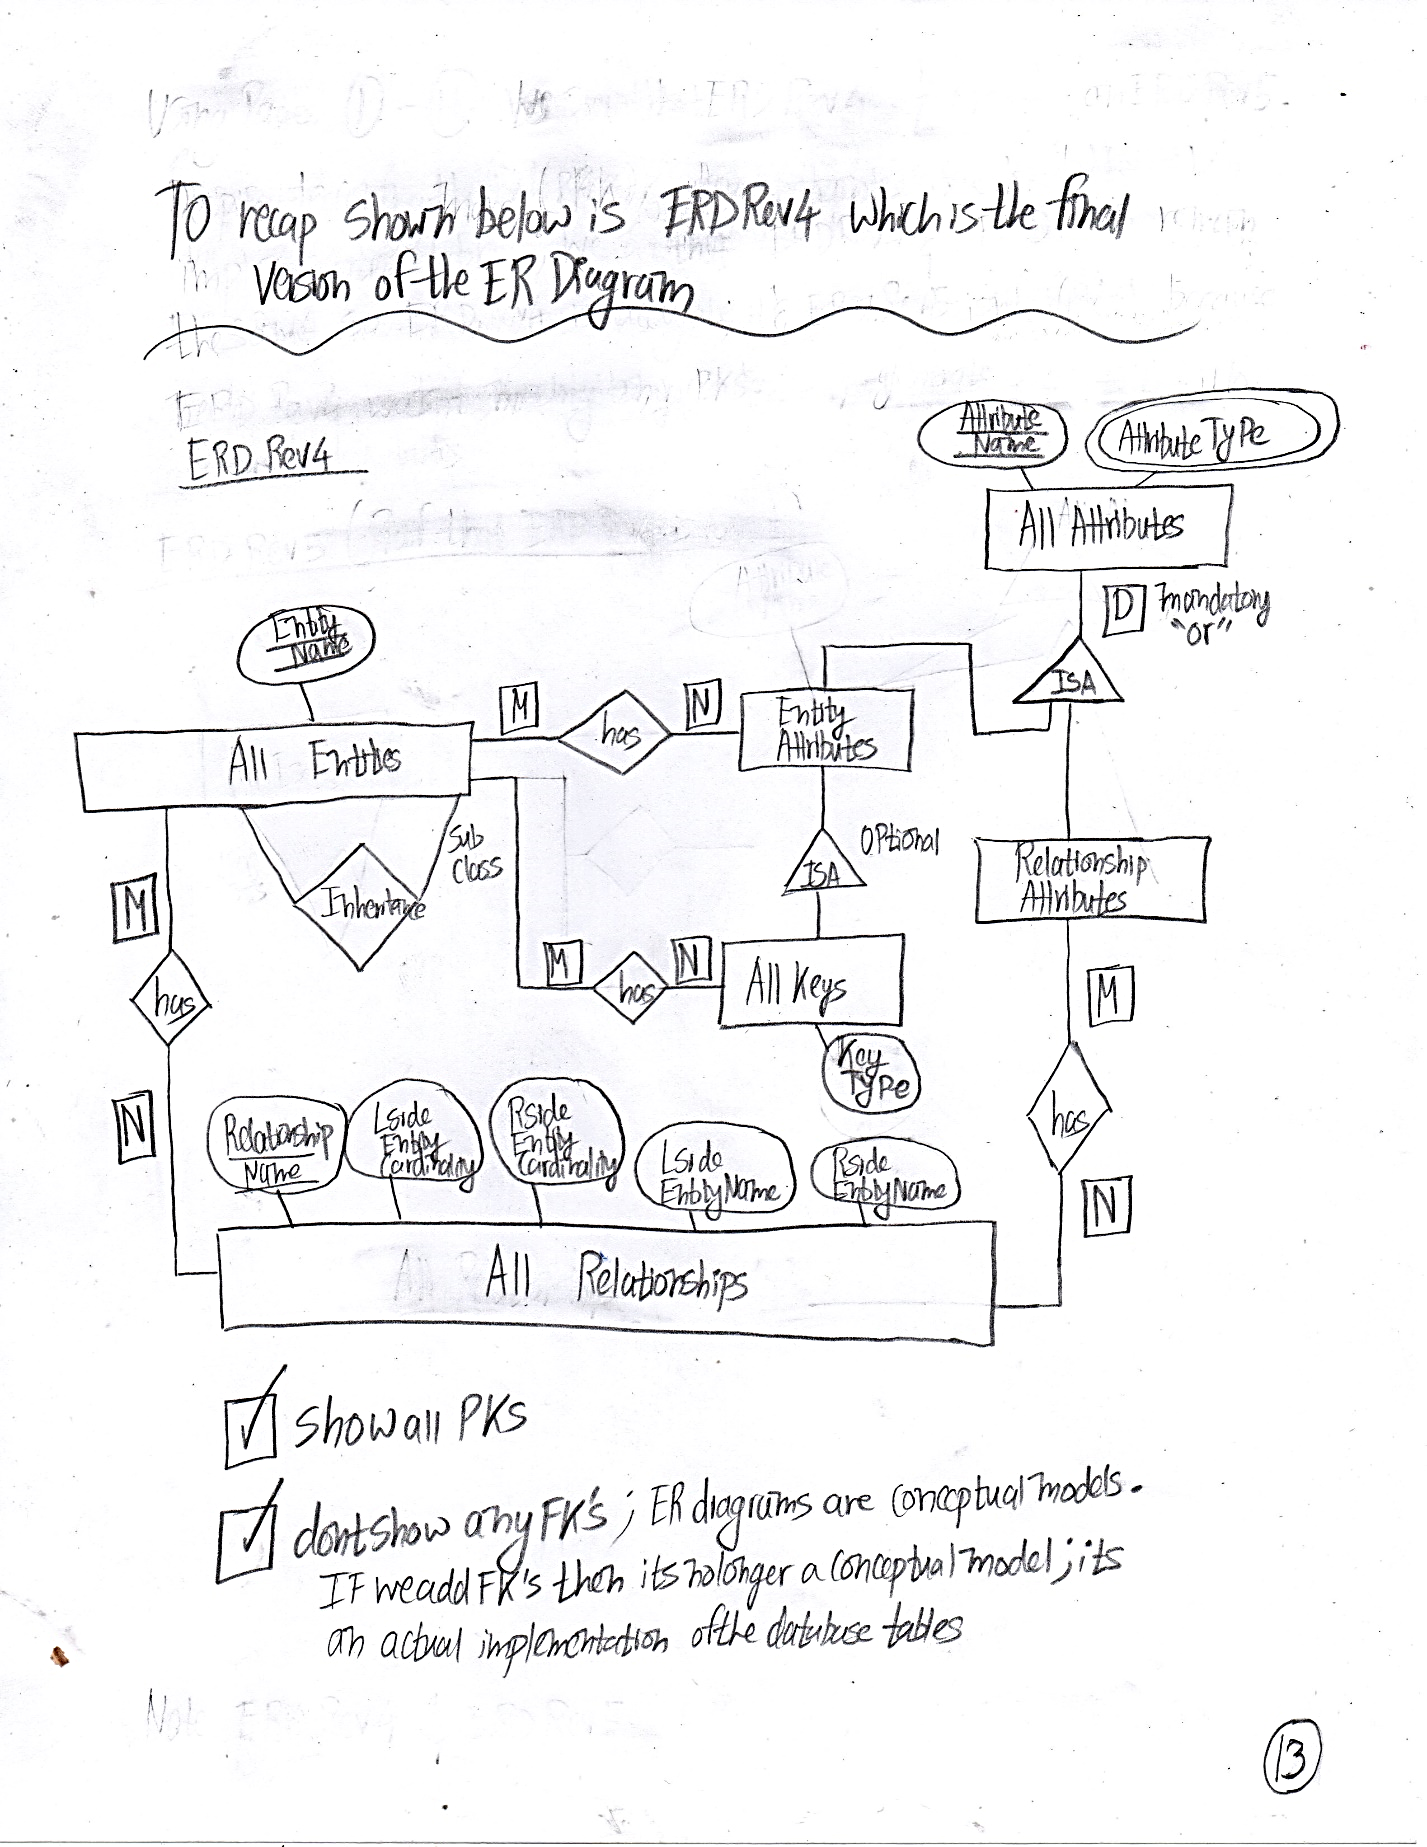 To recap shown below is ERDRev4 which is the final
version of the ER Diagram
ERD Rev4
Attribute
Name
AttributeType
All Attributes
D
mandatory
"or"
ISA
Entity
Name
All Entities
M
has
N
Entity
Attributes
Sub
Class
Inheritance
OPtional
ISA
Relationship
Attributes
M
has
N
M
has
N
All Keys
Key
TyPe
M
has
N
Relationship
Name
Lside
Entity
Cardinality
Rside
Entity
Cardinality
Lside
EntityName
Rside
EntityName
All Relationships
show all PKs
dont show any FK's; ER diagrams are conceptual models.
IF we add FK's then its no longer a conceptual model; its
an actual implementation of the database tables
13